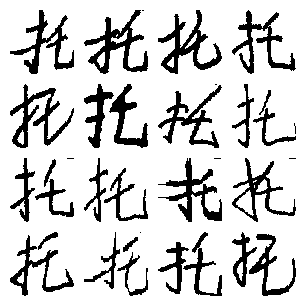 托托托托
托托托托
托托托托
托托托托